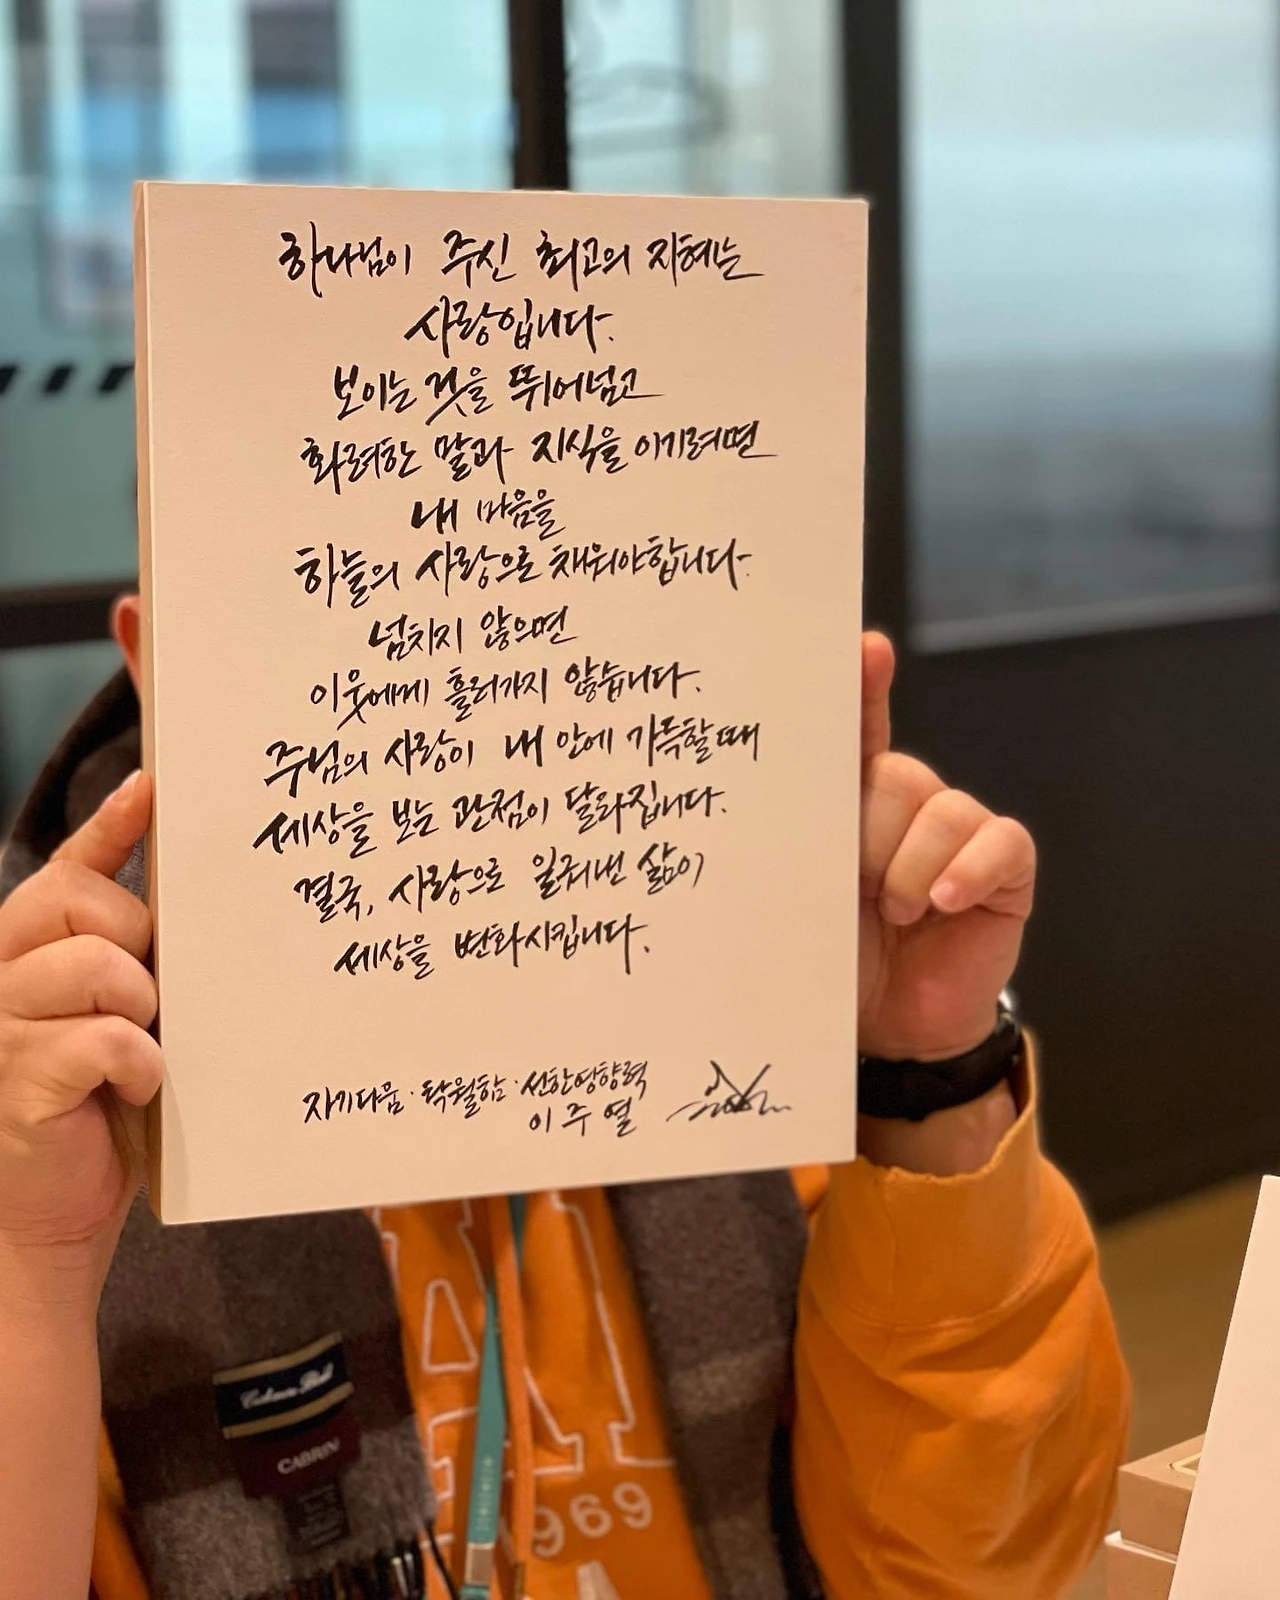 하나님이 주신 최고의 지혜는
사랑입니다.
보이는 것을 뛰어넘고
화려한 말과 지식을 이기려면
내 마음을
하늘의 사랑으로 채워야합니다.
넘치지 않으면
이웃에게 흘러가지 않습니다.
주님의 사랑이 내 안에 가득할때
세상을 보는 관점이 달라집니다.
결국, 사랑으로 일궈낸 삶이
세상을 변화시킵니다.
자기다움·탁월함·선한영향력
이주열
CABRIN
1969